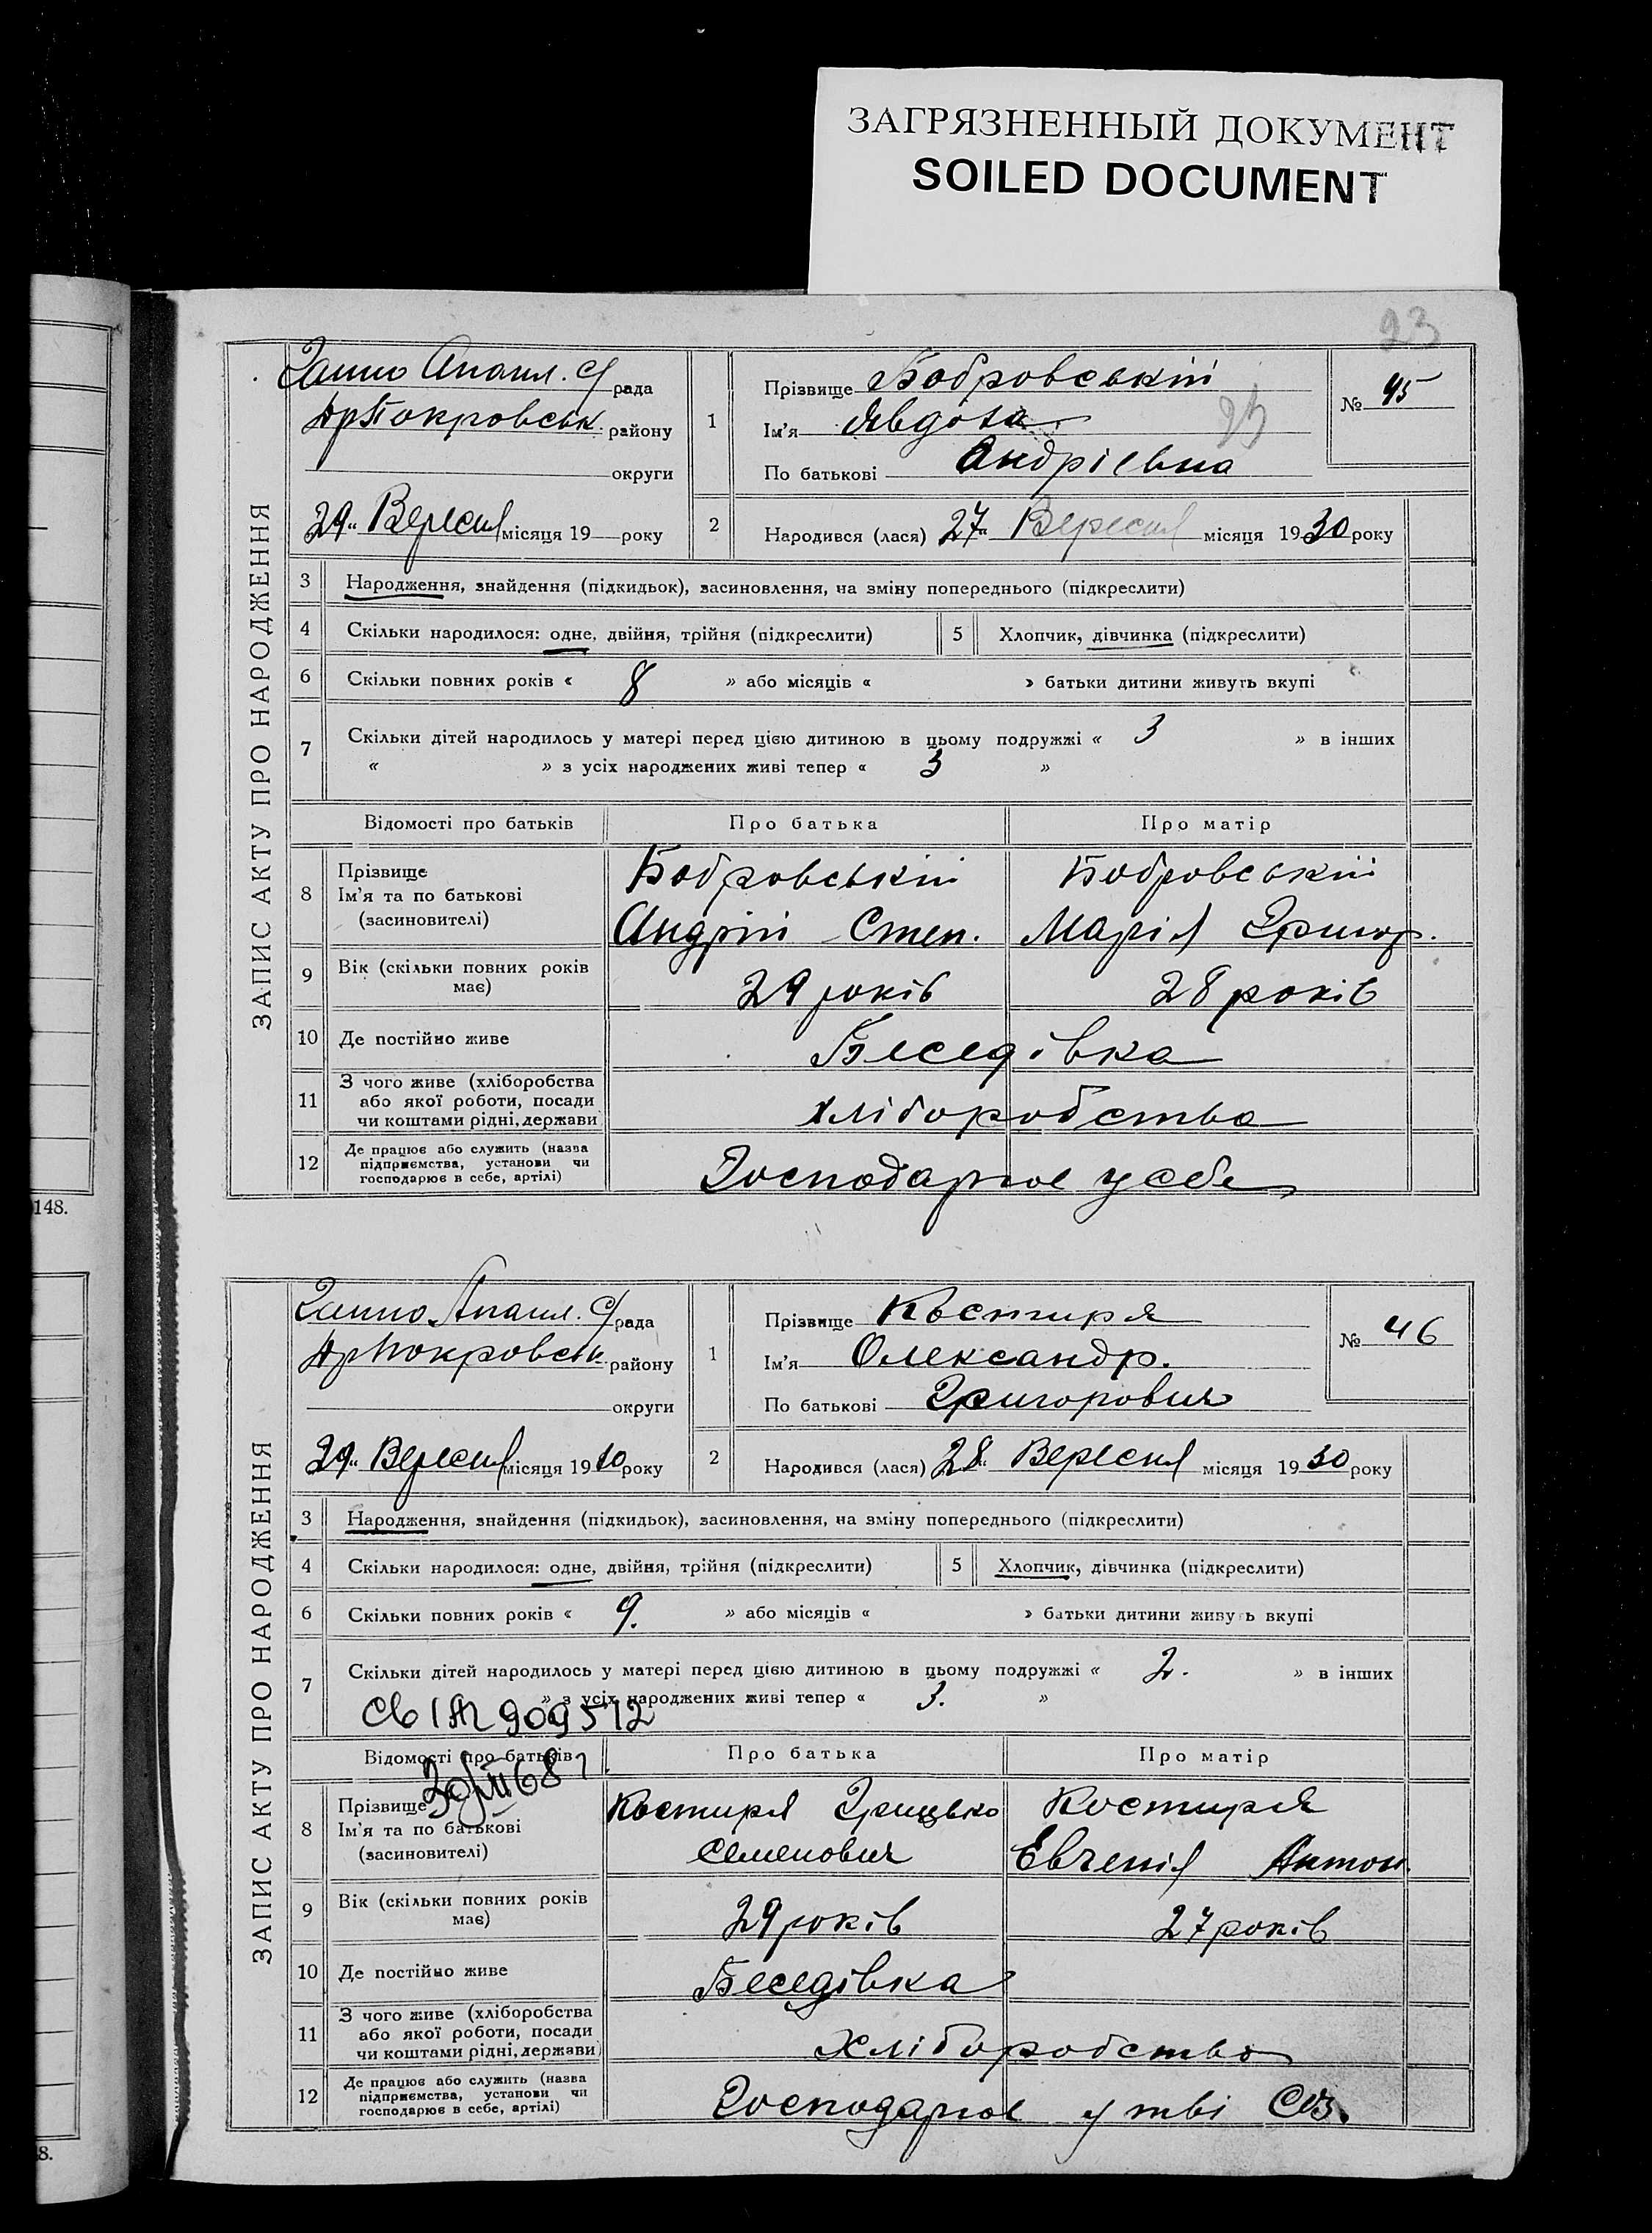 ЗАГРЯЗНЕННЫЙ ДОКУМЕНТ
SOILED DOCUMENT
23
ЗАПИС АКТУ ПРО НАРОДЖЕННЯ
Ганно Апаил. С/рада
Н рПокровськ. району
округи
29" Вересня місяця 19 року
1
Прізвище Бобровський
Ім'я Явдоха
По батькові Андрієвна
№ 45
23
2
Народився (лася) 27" Вересня місяця 1930 року
3 Народження, знайдення (підкидьок), засиновлення, на зміну попереднього (підкреслити)
4 Скільки народилося: одне, двійня, трійня (підкреслити) 5 Хлопчик, дівчинка (підкреслити)
6 Скільки повних років « 8 » або місяців « » батьки дитини живуть вкупі
7 Скільки дітей народилось у матері перед цією дитиною в цьому подружжі « 3 » в інших
« » з усіх народжених живі тепер « 3 »
Відомості про батьків Про батька Про матір
8 Прізвище Бобровський Бобровській
Ім'я та по батькові
(засиновителі) Андрій Степ. Марія Григор.
9 Вік (скільки повних років має) 29 років 28 років
10 Де постійно живе Беседівка
11 З чого живе (хліборобства
або якої роботи, посади
чи коштами рідні, держави) хліборобства
12 Де працює або служить (назва
підприємства, установи чи
господарює в себе, артілі) Господарює у себе
148.
ЗАПИС АКТУ ПРО НАРОДЖЕННЯ
Ганно Апаил. С/рада
Н рПокровськ. району
округи
29" Вересня місяця 1930 року
1
Прізвище Костиря
Ім'я Олександр.
По батькові Григорович
№ 46
2
Народився (лася) 28" Вересня місяця 1930 року
3 Народження, знайдення (підкидьок), засиновлення, на зміну попереднього (підкреслити)
4 Скільки народилося: одне, двійня, трійня (підкреслити) 5 Хлопчик, дівчинка (підкреслити)
6 Скільки повних років « 9. » або місяців « » батьки дитини живуть вкупі
7 Скільки дітей народилось у матері перед цією дитиною в цьому подружжі « 2. » в інших
» з усіх народжених живі тепер « 3. »
909512
Відомості про батьків Про батька Про матір
8 Прізвище Костиря Грицько Костиря
Ім'я та по батькові
(засиновителі) Семенович Евгенія Антон.
9 Вік (скільки повних років має) 29 років 27 років
10 Де постійно живе Беседівка
11 З чого живе (хліборобства
або якої роботи, посади
чи коштами рідні, держави) Хліборобство
12 Де працює або служить (назва
підприємства, установи чи
господарює в себе, артілі) Господарює у тві Соз.
8.